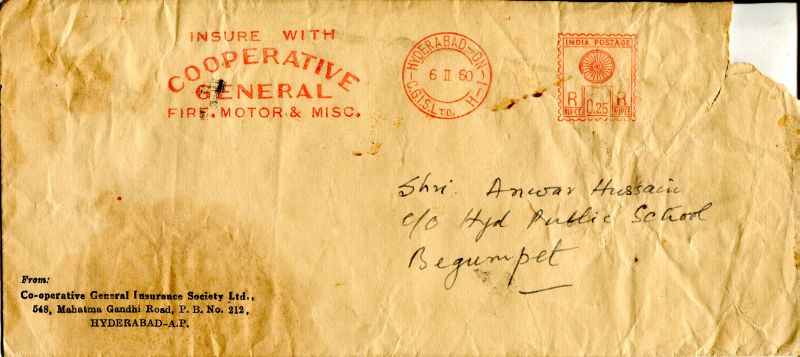 INSURE WITH
COOPERATIVE
GENERAL
FIRE, MOTOR & MISC.
HYDERABAD-DN-1
6 II 60
C.G.I.S. LTD. H-1
INDIA POSTAGE
R R
0.25
Shri. Anwar Hussain
C/o Hyd Public School
Begumpet
From:
Co-operative General Insurance Society Ltd.,
548, Mahatma Gandhi Road, P. B. No. 212,
HYDERABAD-A.P.